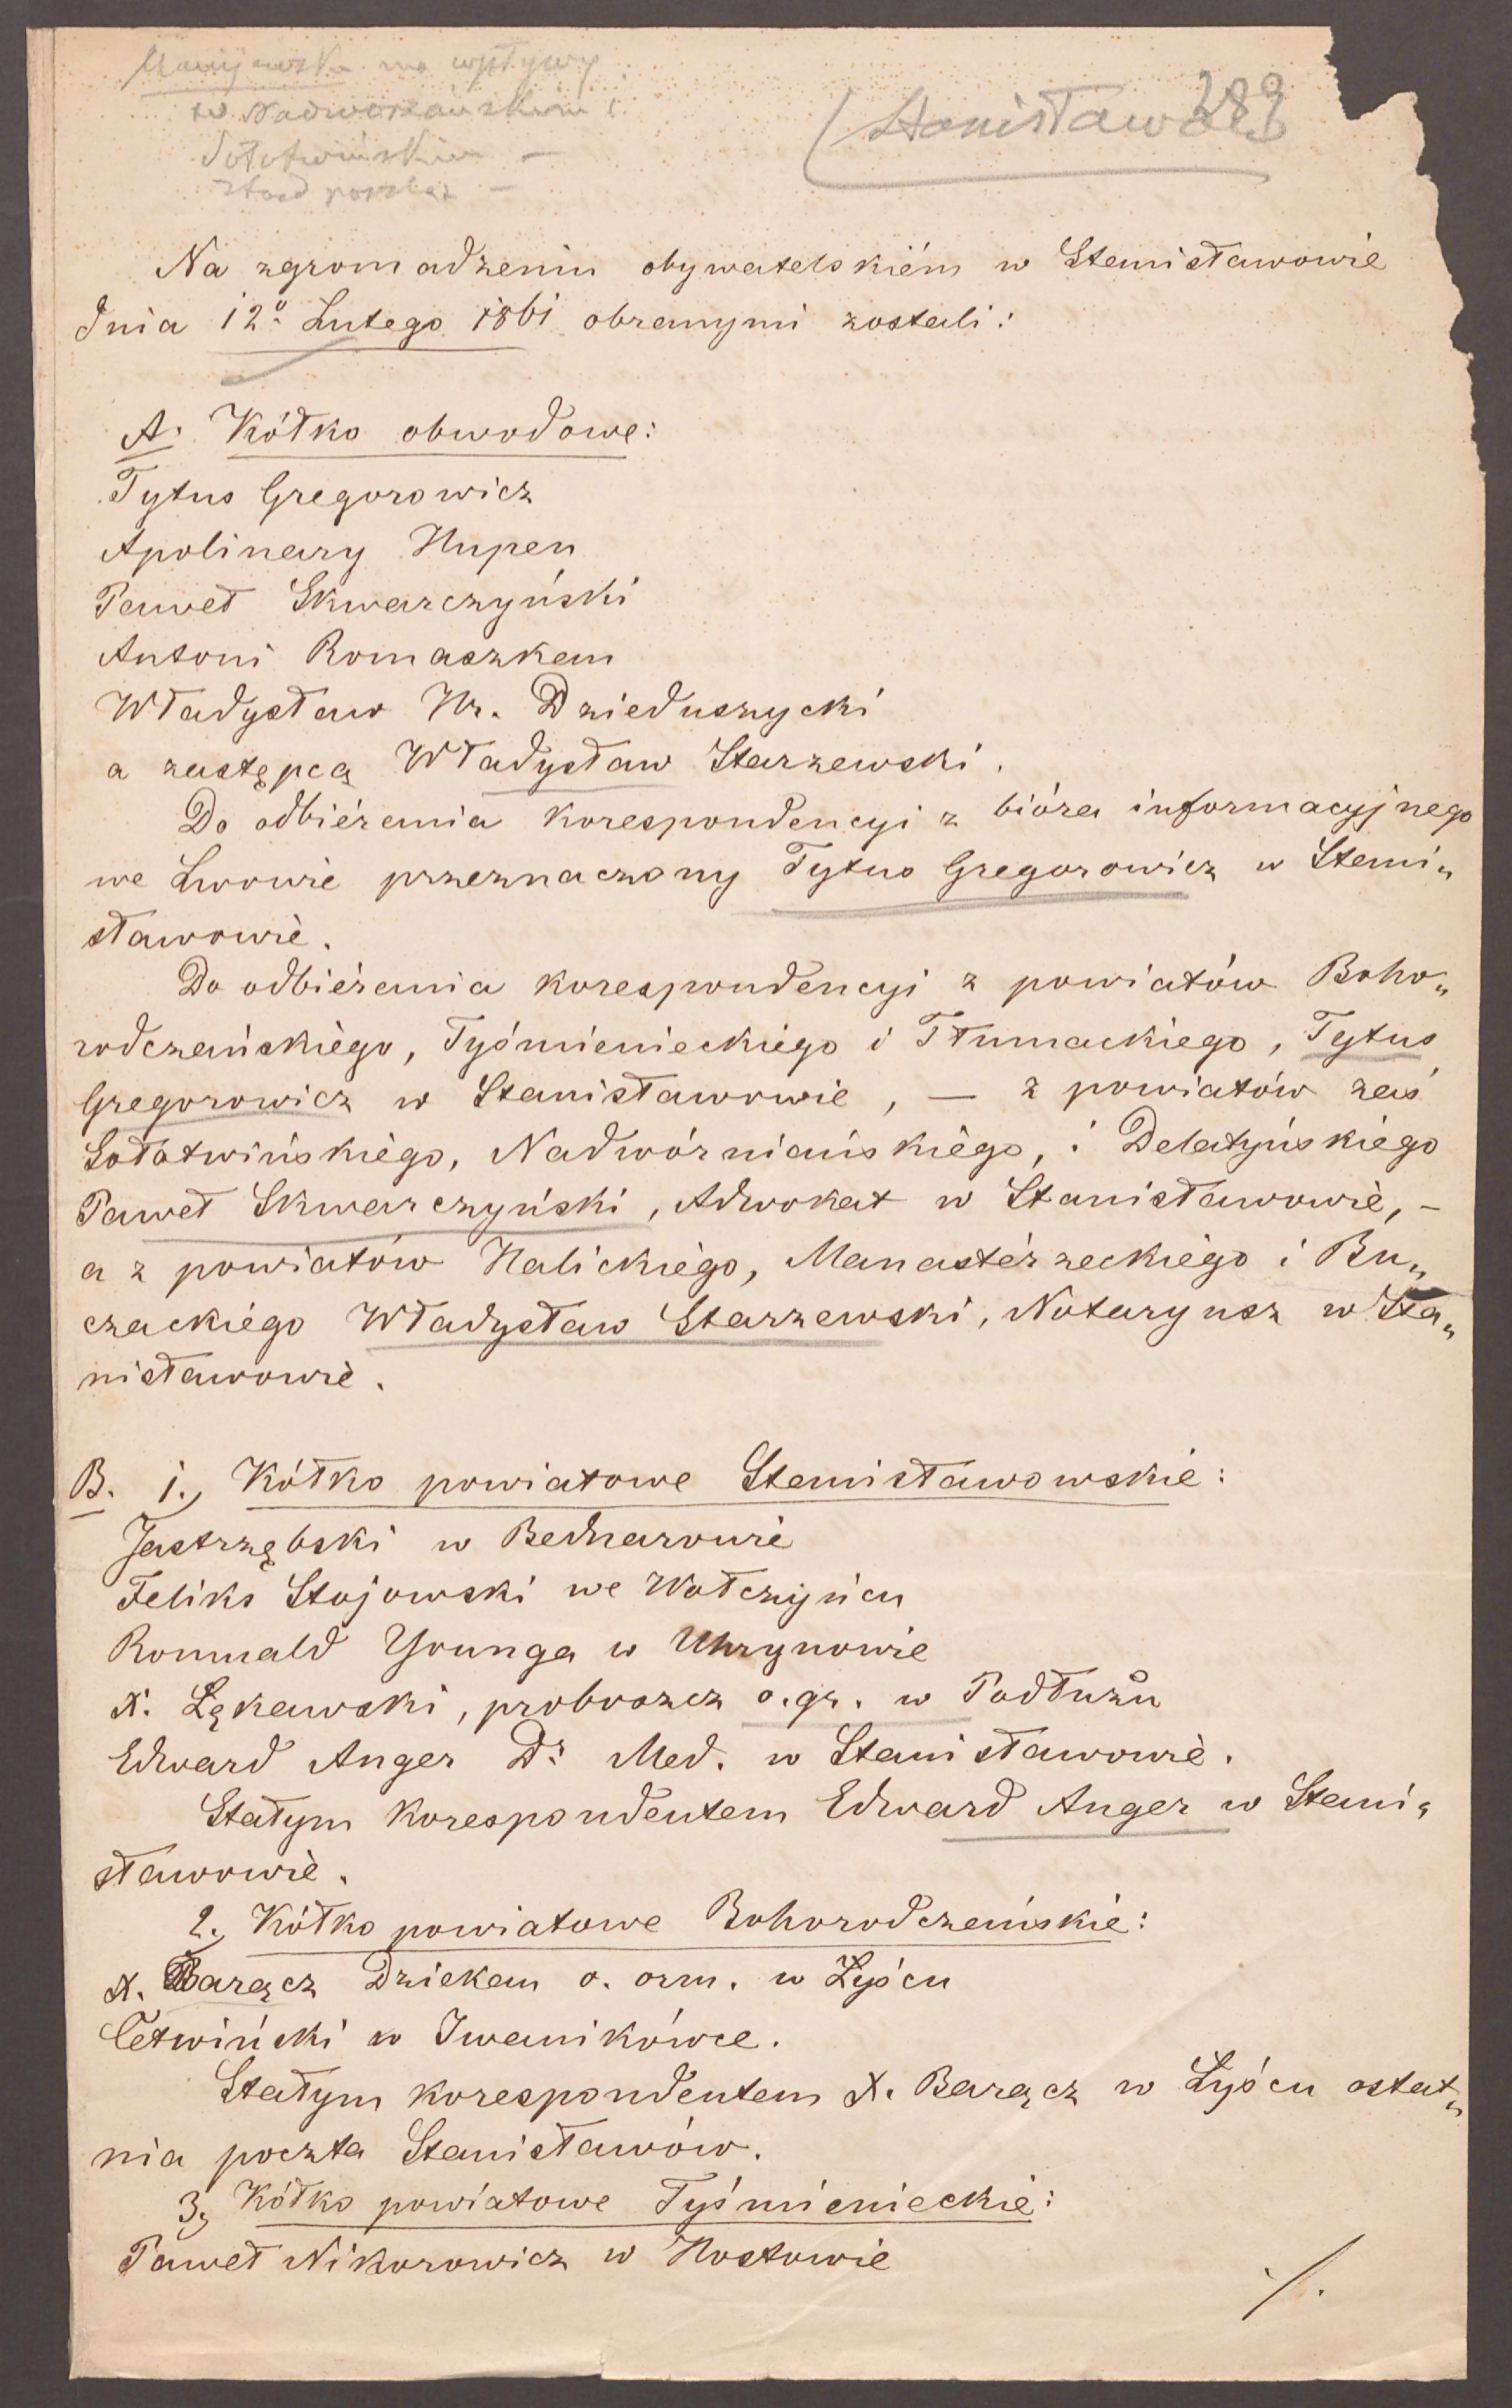 ma wpływy
w Nadworniańskim i
Sołotwińskim —
(Stanisławów
289
Na zgromadzeniu obywatelskiém w Stanisławowie
dnia 12º Lutego 1861 obranymi zostali:
A. Kółko obwodowe:
Tytus Gregorowicz
Apolinary Hupen
Paweł Skwarczyński
Antoni Romaszkan
Władysław Hr. Dzieduszycki
a zastępcą Władysław Starzewski.
Do odbiérania korespondencyi z bióra informacyjnego
we Lwowie przeznaczony Tytus Gregorowicz w Stani„
sławowie.
Do odbiérania korespondencyi z powiatów Boho„
rodczańskiego, Tyśmienieckiego i Tłumackiego, Tytus
Gregorowicz w Stanisławowie, — z powiatów zaś
Sołotwińskiego, Nadwórniańskiego, i Delatyńskiego
Paweł Skwarczyński, Adwokat w Stanisławowie, –
a z powiatów Halickiego, Manastérzeckiego i Bu„
czackiego Władysław Starzewski, Notaryusz w Sta„
nisławowie.
B. 1., Kółko powiatowe Stanisławowskie:
Jastrzębski w Bednarowie
Feliks Stojowski we Wołczyńcu
Romuald Younga w Uhrynowie
X. Łękawski, proboszcz o. gr. w Podłużu
Edward Anger Dr Med. w Stanisławowie.
Stałym korespondentem Edward Anger w Stani„
sławowie.
2., Kółko powiatowe Bohorodczańskie:
X. Barącz Dziekan o. orm. w Łyścu
Cetwiński w Iwanikówce.
Stałym korespondentem X. Barącz w Łyścu ostat„
nia poczta Stanisławów.
3, Kółko powiatowe Tyśmienieckie:
Paweł Nikorowicz w Hostowie
./.